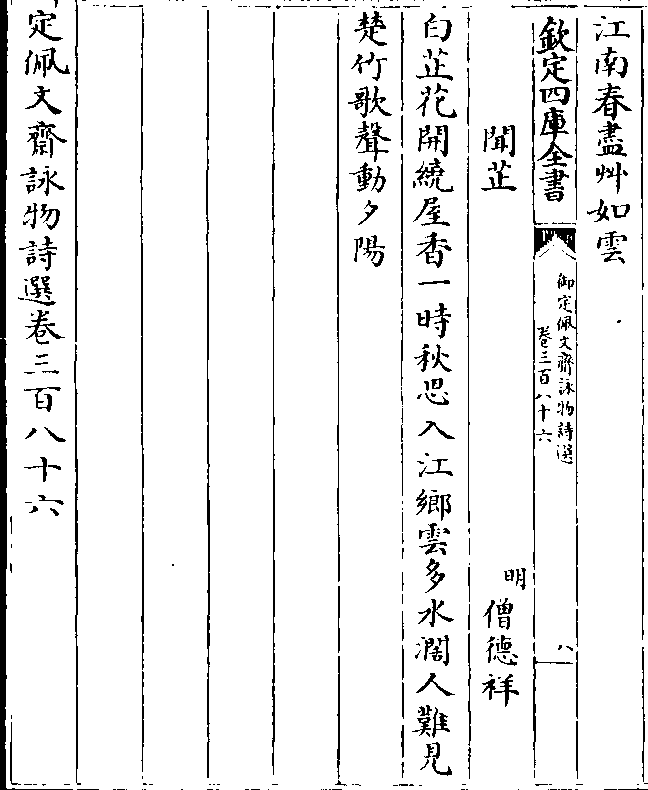 江南春盡艸如雲
欽定四庫全書
御定佩文齋詠物詩選
卷三百八十六
八
聞芷
明
僧德祥
白芷花開繞屋香一時秋思入江鄉雲多水濶人難見
楚竹歌聲動夕陽
定佩文齋詠物詩選卷三百八十六